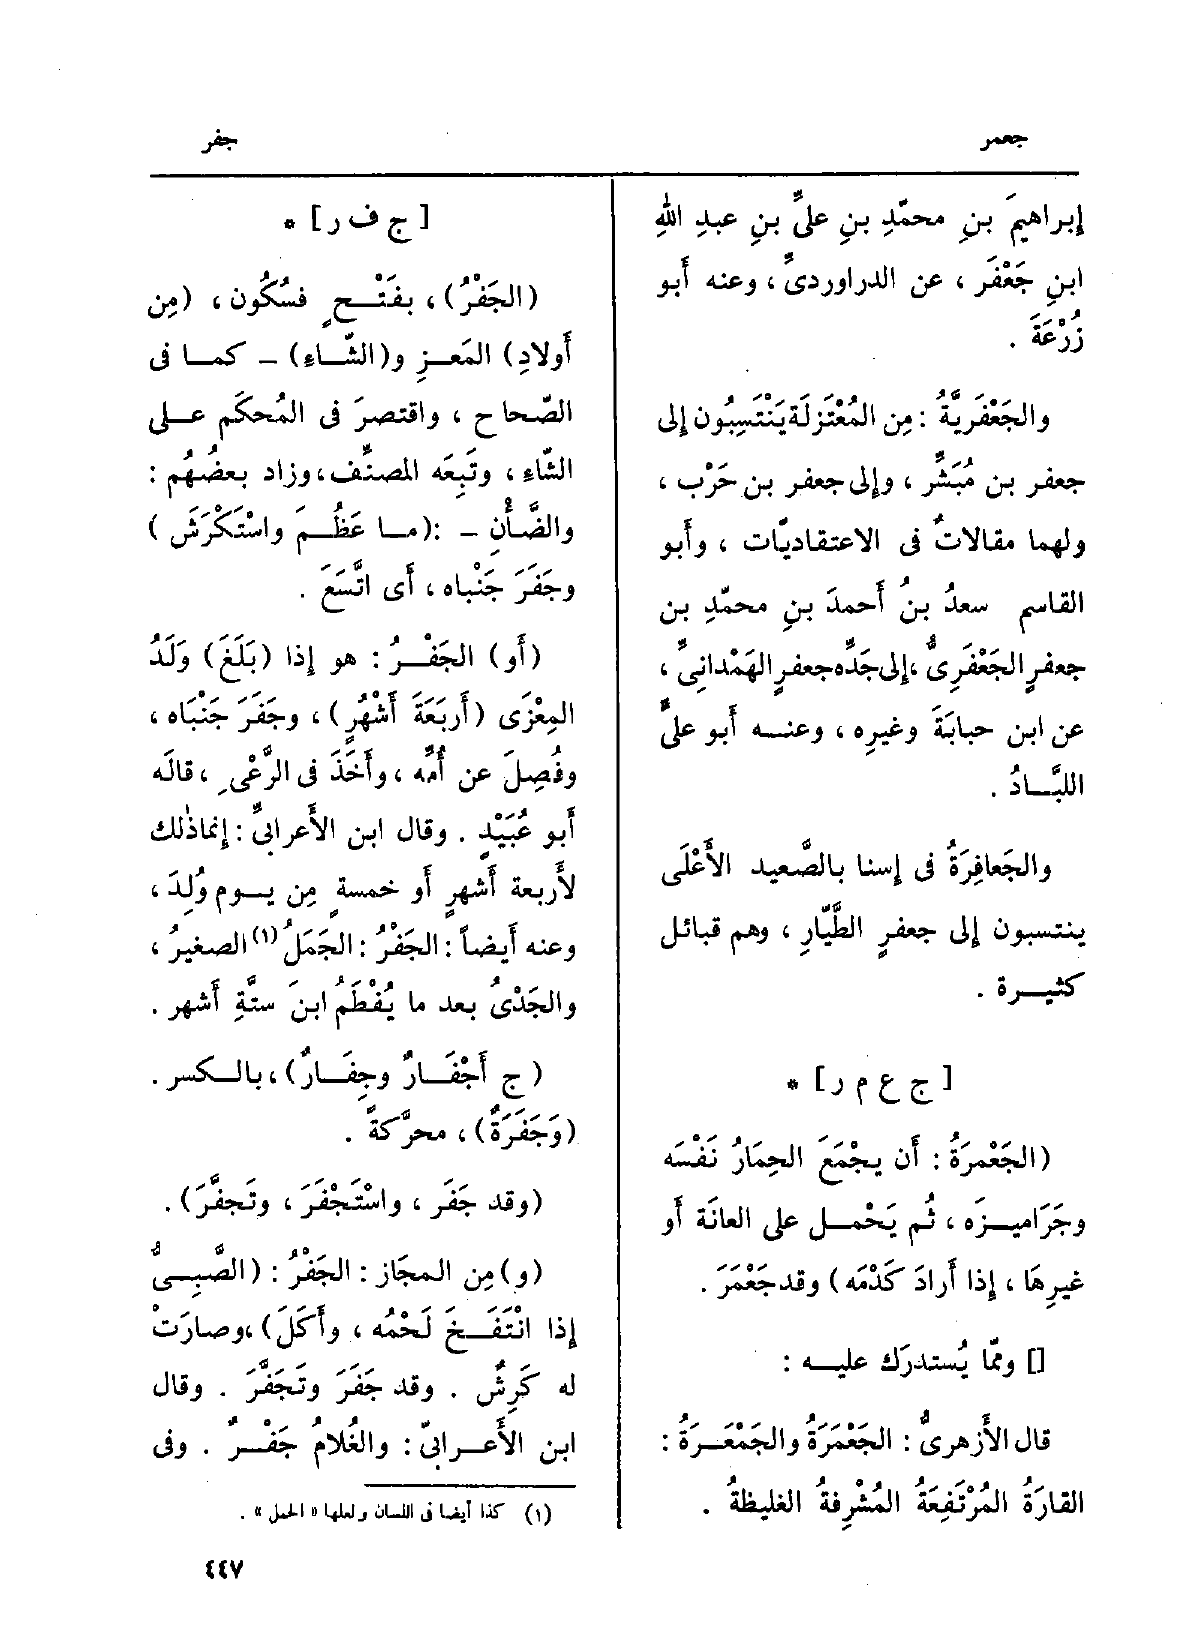 جعمر
جفر
إبراهيمَ بنِ محمّدِ بنِ علىِّ بنِ عبدِ اللهِ
ابنِ جَعْفَر ، عن الدراوردىِّ ، وعنه أَبو
زُرْعَةَ .
والجَعْفَرِيَّةُ : مِن المُعْتَزِلَة يَنْتَسِبُون إِلى
جعفر بن مُبَشِّر ، وإِلى جعفر بن حَرْب ،
ولهما مقالاتٌ فى الاعتقاديّات ، وأَبو
القاسم سعدُ بنُ أَحمدَ بنِ محمّدِ بن
جعفرٍ الجَعْفَرِىُّ ، إِلى جَدِّه جعفرٍ الهَمْدانِىِّ ،
عن ابن حبابَةَ وغيرِه ، وعنــه أَبو علىٍّ
اللبَّــادُ .
والجَعافِرَةُ فى إِسنا بالصَّعِيد الأَعْلَى
ينتسبون إِلى جعفرٍ الطَّيّارِ ، وهم قبائل
كثيــرة .
[ ج ع م ر ] *
(الجَعْمرَةُ : أَن يجْمَعَ الحِمَارُ نَفْسَه
وجَرَاميــزَه ، ثُم يَحْمــل على العانَة أَو
غيرِهَا ، إِذا أَرادَ كَدْمَه) وقد جَعْمَرَ .
[] وممّا يُستدرَك عليــه :
قال الأَزهرىُّ : الجَعْمَرَةُ والجَمْعَــرَةُ :
القارَةُ المُرْتَفِعَةُ المُشْرِفةُ الغليظةُ .
[ ج ف ر ] *
(الجَفْرُ) ، بفَتْــحٍ فسُكُون ، (مِن
أَولادِ) المَعــزِ و(الشّــاءِ) – كمــا فى
الصّحاح ، واقتصرَ فى المُحكَم علــى
الشّاءِ ، وتَبِعَه المصنِّف ، وزاد بعضُهُم :
والضَّــأْنِ – :(مــا عَظُــمَ واسْتَكْرَشَ )
وجَفَرَ جَنْباه ، أَى اتَّسَعَ .
(أَو) الجَفْــرُ : هو إِذا (بَلَغَ) وَلَدُ
المِعْزَى (أَربَعَةَ أَشهُرٍ) ، وجَفَرَ جَنْبَاه ،
وفُصِلَ عن أُمِّه ، وأَخَذَ فى الرَّعْىِ ، قالَه
أَبو عُبَيْدٍ . وقال ابن الأَعرابىِّ : إِنماذٰلك
لأَربعة أَشهرٍ أَو خمسةٍ مِن يــوم وُلِدَ ،
وعنه أَيضاً : الجَفْرُ : الجَمَلُ (١) الصغيرُ ،
والجَدْىُ بعد ما يُفْطَمُ ابنَ ستَّةِ أَشهر .
( ج أَجْفَــارٌ وجِفَــارٌ) ، بالــكسر .
(وَجَفَرَةٌ) ، محرَّكةً .
(وقد جَفَر ، واسْتَجْفَرَ ، وتَجفَّرَ) .
(و) مِن المجَاز : الجَفْرُ : (الصَّبِــىُّ
إِذا انْتَفَــخَ لَحْمُه ، وأَكَلَ) ، وصارَتْ
له كَرِشٌ . وقد جَفَرَ وتَجَفَّرَ . وقال
ابن الأَعــرابىّ : والغُلامُ جَفْــرٌ . وفى
(١) كذا أيضا فى اللسان ولعلها « الحمل » .
٤٤٧